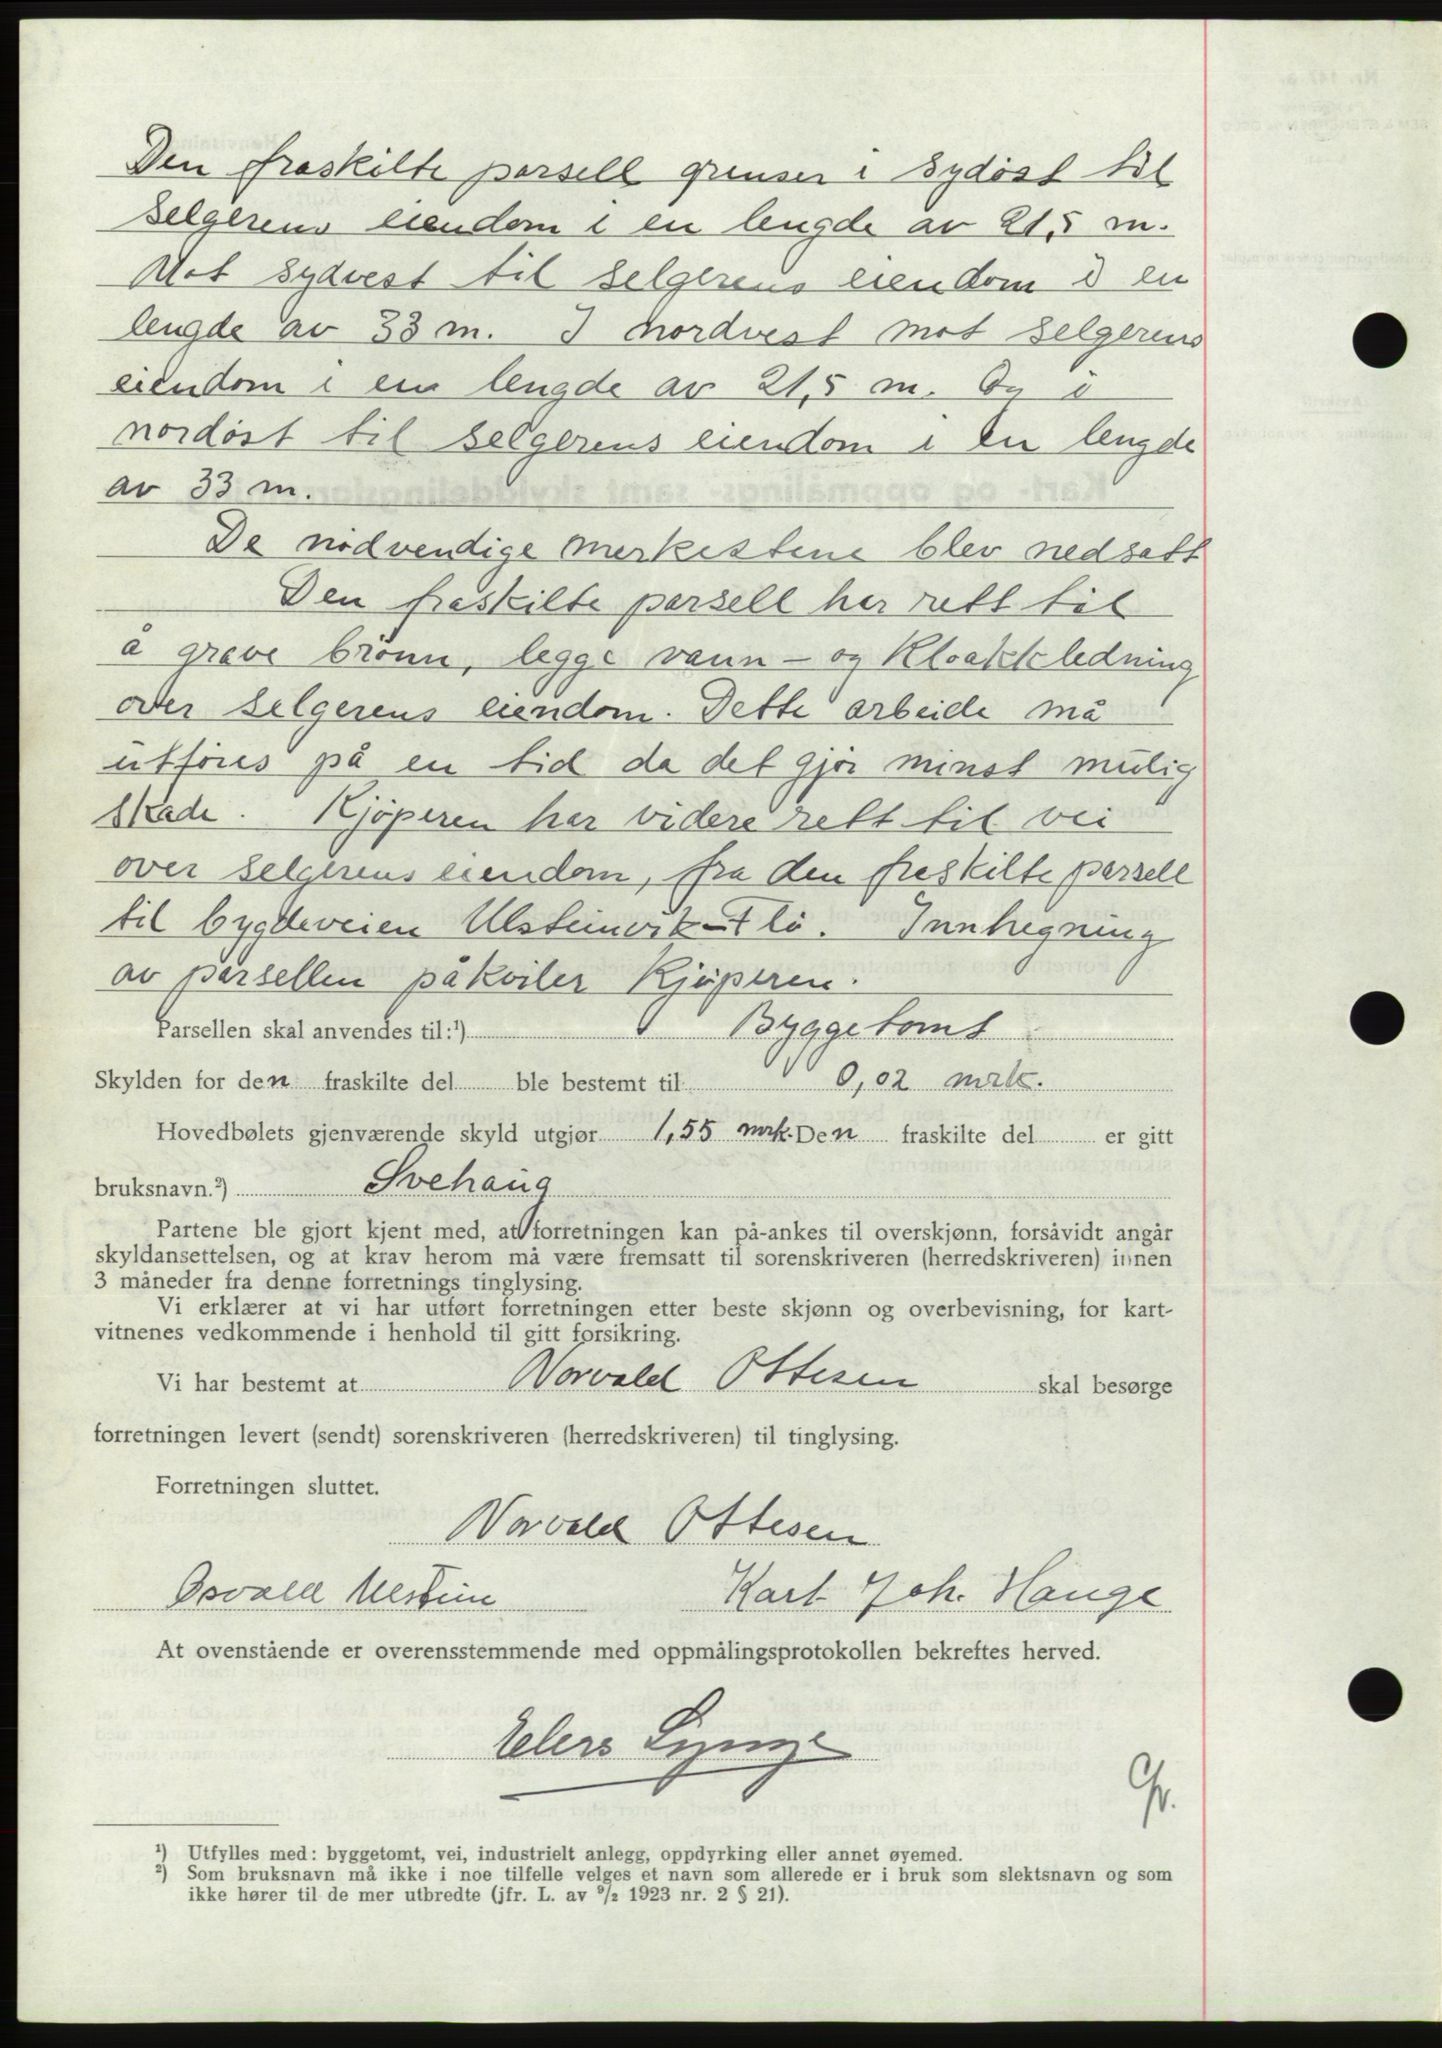 Den fraskilte parsell grenser i sydøst til
selgerens eiendom i en lengde av 21,5 m.
Mot sydvest til selgerens eiendom i en
lengde av 33 m. I nordvest mot selgerens
eiendom i en lengde av 21,5 m. Og i
nordøst til selgerens eiendom i en lengde
av 33 m.
De nødvendige merkestene blev nedsatt
Den fraskilte parsell har rett til
å grave brønn, legge vann- og kloakkledning
over selgerens eiendom. Dette arbeide må
utføres på en tid da det gjør minst mulig
skade. Kjøperen har videre rett til vei
over selgerens eiendom, fra den fraskilte parsell
til bygdeveien Ulsteinvik-Flø. Innhegning
av parsellen påkviler kjøperen.
Parsellen skal anvendes til:¹) Byggetomt
Skylden for den fraskilte del ble bestemt til 0,02 mrk.
Hovedbølets gjenværende skyld utgjør 1,55 mrk. Den fraskilte del er gitt
bruksnavn.²) Svehaug
Partene ble gjort kjent med, at forretningen kan på-ankes til overskjønn, forsåvidt angår
skyldansettelsen, og at krav herom må være fremsatt til sorenskriveren (herredskriveren) innen
3 måneder fra denne forretnings tinglysing.
Vi erklærer at vi har utført forretningen etter beste skjønn og overbevisning, for kart-
vitnenes vedkommende i henhold til gitt forsikring.
Vi har bestemt at Norvald Ottesen skal besørge
forretningen levert (sendt) sorenskriveren (herredskriveren) til tinglysing.
Forretningen sluttet.
Norvald Ottesen
Osvald Ulstein Karl Joh. Hauge
At ovenstående er overensstemmende med oppmålingsprotokollen bekreftes herved.
Elers Lynge
¹) Utfylles med: byggetomt, vei, industrielt anlegg, oppdyrking eller annet øyemed.
²) Som bruksnavn må ikke i noe tilfelle velges et navn som allerede er i bruk som slektsnavn og som
ikke hører til de mer utbredte (jfr. L. av ⁹/₂ 1923 nr. 2 § 21).